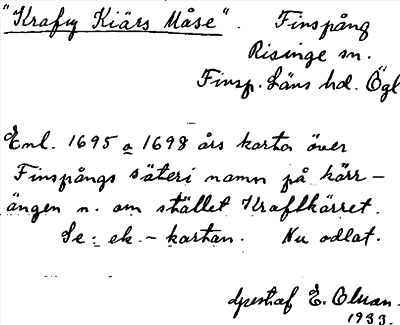 "Krafy Kiärs Måse". Finspång
Risinge sn.
Finsp. Läns hd. Ögl
Enl. 1695 a 1698 års karta över
Finspångs säteri namn på kärr-
ängen n. om stället Kraftkärret.
Se: ek.-kartan. Nu odlat.
Gustaf E. Olsson.
1933.